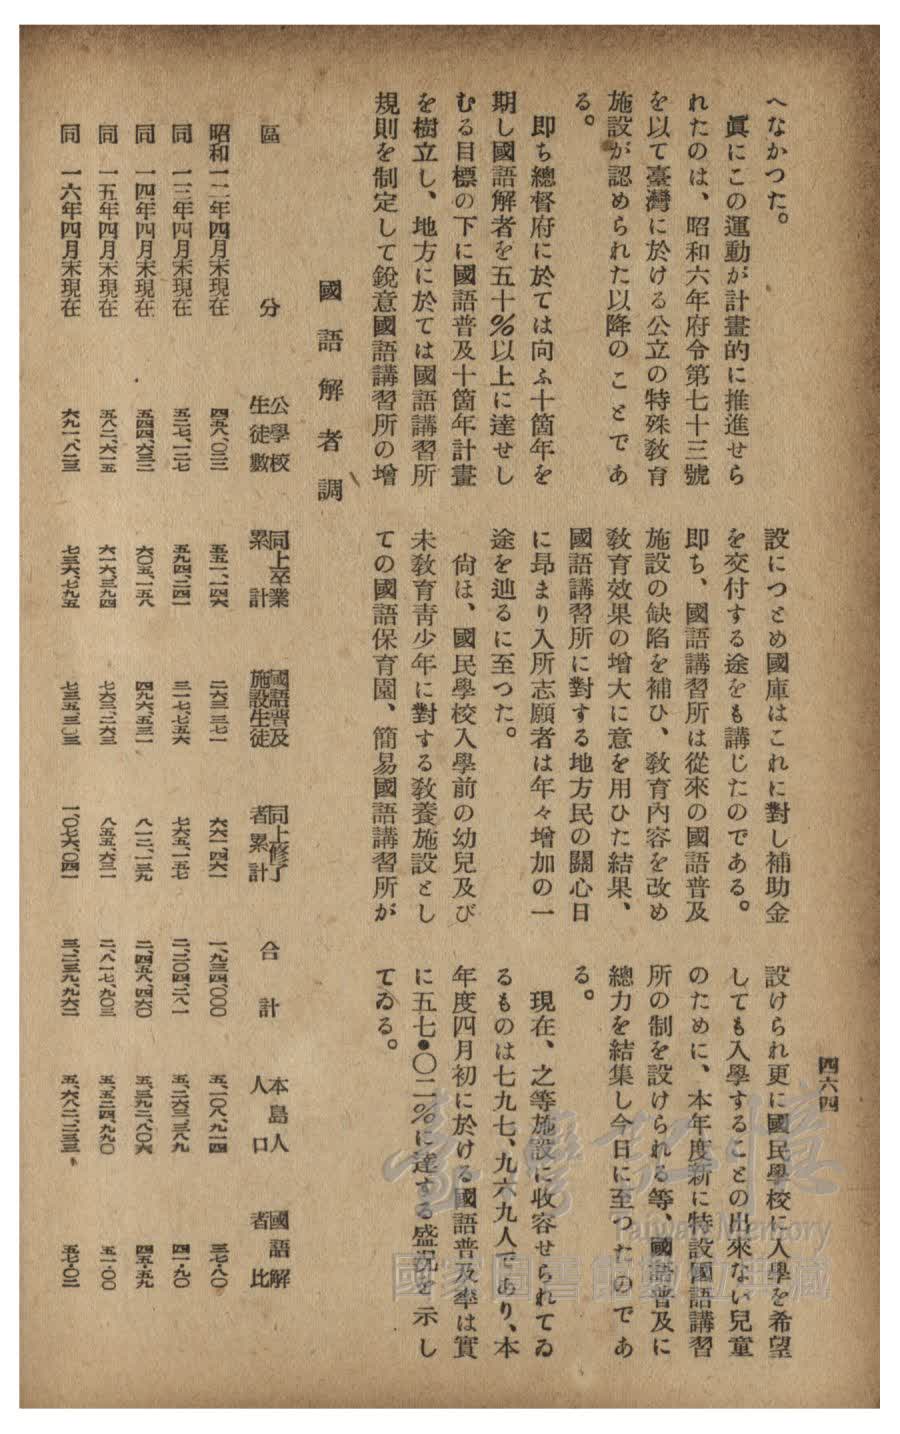 四六四
へなかつた。
眞にこの運動が計畫的に推進せら
れたのは、昭和六年府令第七十三號
を以て臺灣に於ける公立の特殊敎育
施設が認められた以降のことであ
る。
即ち總督府に於ては向ふ十箇年を
期し國語解者を五十％以上に達せし
むる目標の下に國語普及十箇年計畫
を樹立し、地方に於ては國語講習所
規則を制定して銳意國語講習所の增
設につとめ國庫はこれに對し補助金
を交付する途をも講じたのである。
即ち、國語講習所は從來の國語普及
施設の缺陷を補ひ、敎育內容を改め
敎育效果の增大に意を用ひた結果、
國語講習所に對する地方民の關心日
に昂まり入所志願者は年々增加の一
途を辿るに至つた。
尙ほ、國民學校入學前の幼兒及び
未敎育靑少年に對する敎養施設とし
ての國語保育園、簡易國語講習所が
設けられ更に國民學校に入學を希望
しても入學することの出來ない兒童
のために、本年度新に特設國語講習
所の制を設けられる等、國語普及に
總力を結集し今日に至つたのであ
る。
現在、之等施設に收容せられてゐ
るものは七九七、九六九人であり、本
年度四月初に於ける國語普及率は實
に五七•〇二％に達する盛況を示し
てゐる。
國語解者調
區分 公學校生徒數 同上卒業累計 國語普及施設生徒 同上修了者累計 合計 本島人人口 國語解者比
昭和一二年四月末現在 四五八、〇二二 五五一、一四六 二六三、三七一 六六一、四六一 一、九三四、〇〇〇 五、一〇八、九一四 三七・八〇
同 一三年四月末現在 五二七、一二七 五九四、二四一 三一七、七五六 七六五、一五七 二、二〇四、二八一 五、二六三、三八九 四一・九〇
同 一四年四月末現在 五四四、六三二 六〇五、一五八 四九六、五三一 八一二、一三九 二、四五八、四六〇 五、三九二、八〇六 四五・五九
同 一五年四月末現在 五八二、六一五 六一六、三九四 七六三、二六三 八五五、六三一 二、八一七、九〇三 五、五二四、九九〇 五一・〇〇
同 一六年四月末現在 六九一、八二三 七三六、七九五 七三五、三〇三 一、〇七六、〇四一 三、二三九、九六二 五、六八二、二三三 五七・〇二
臺灣記憶
Taiwan Memory
國家圖書館數位典藏